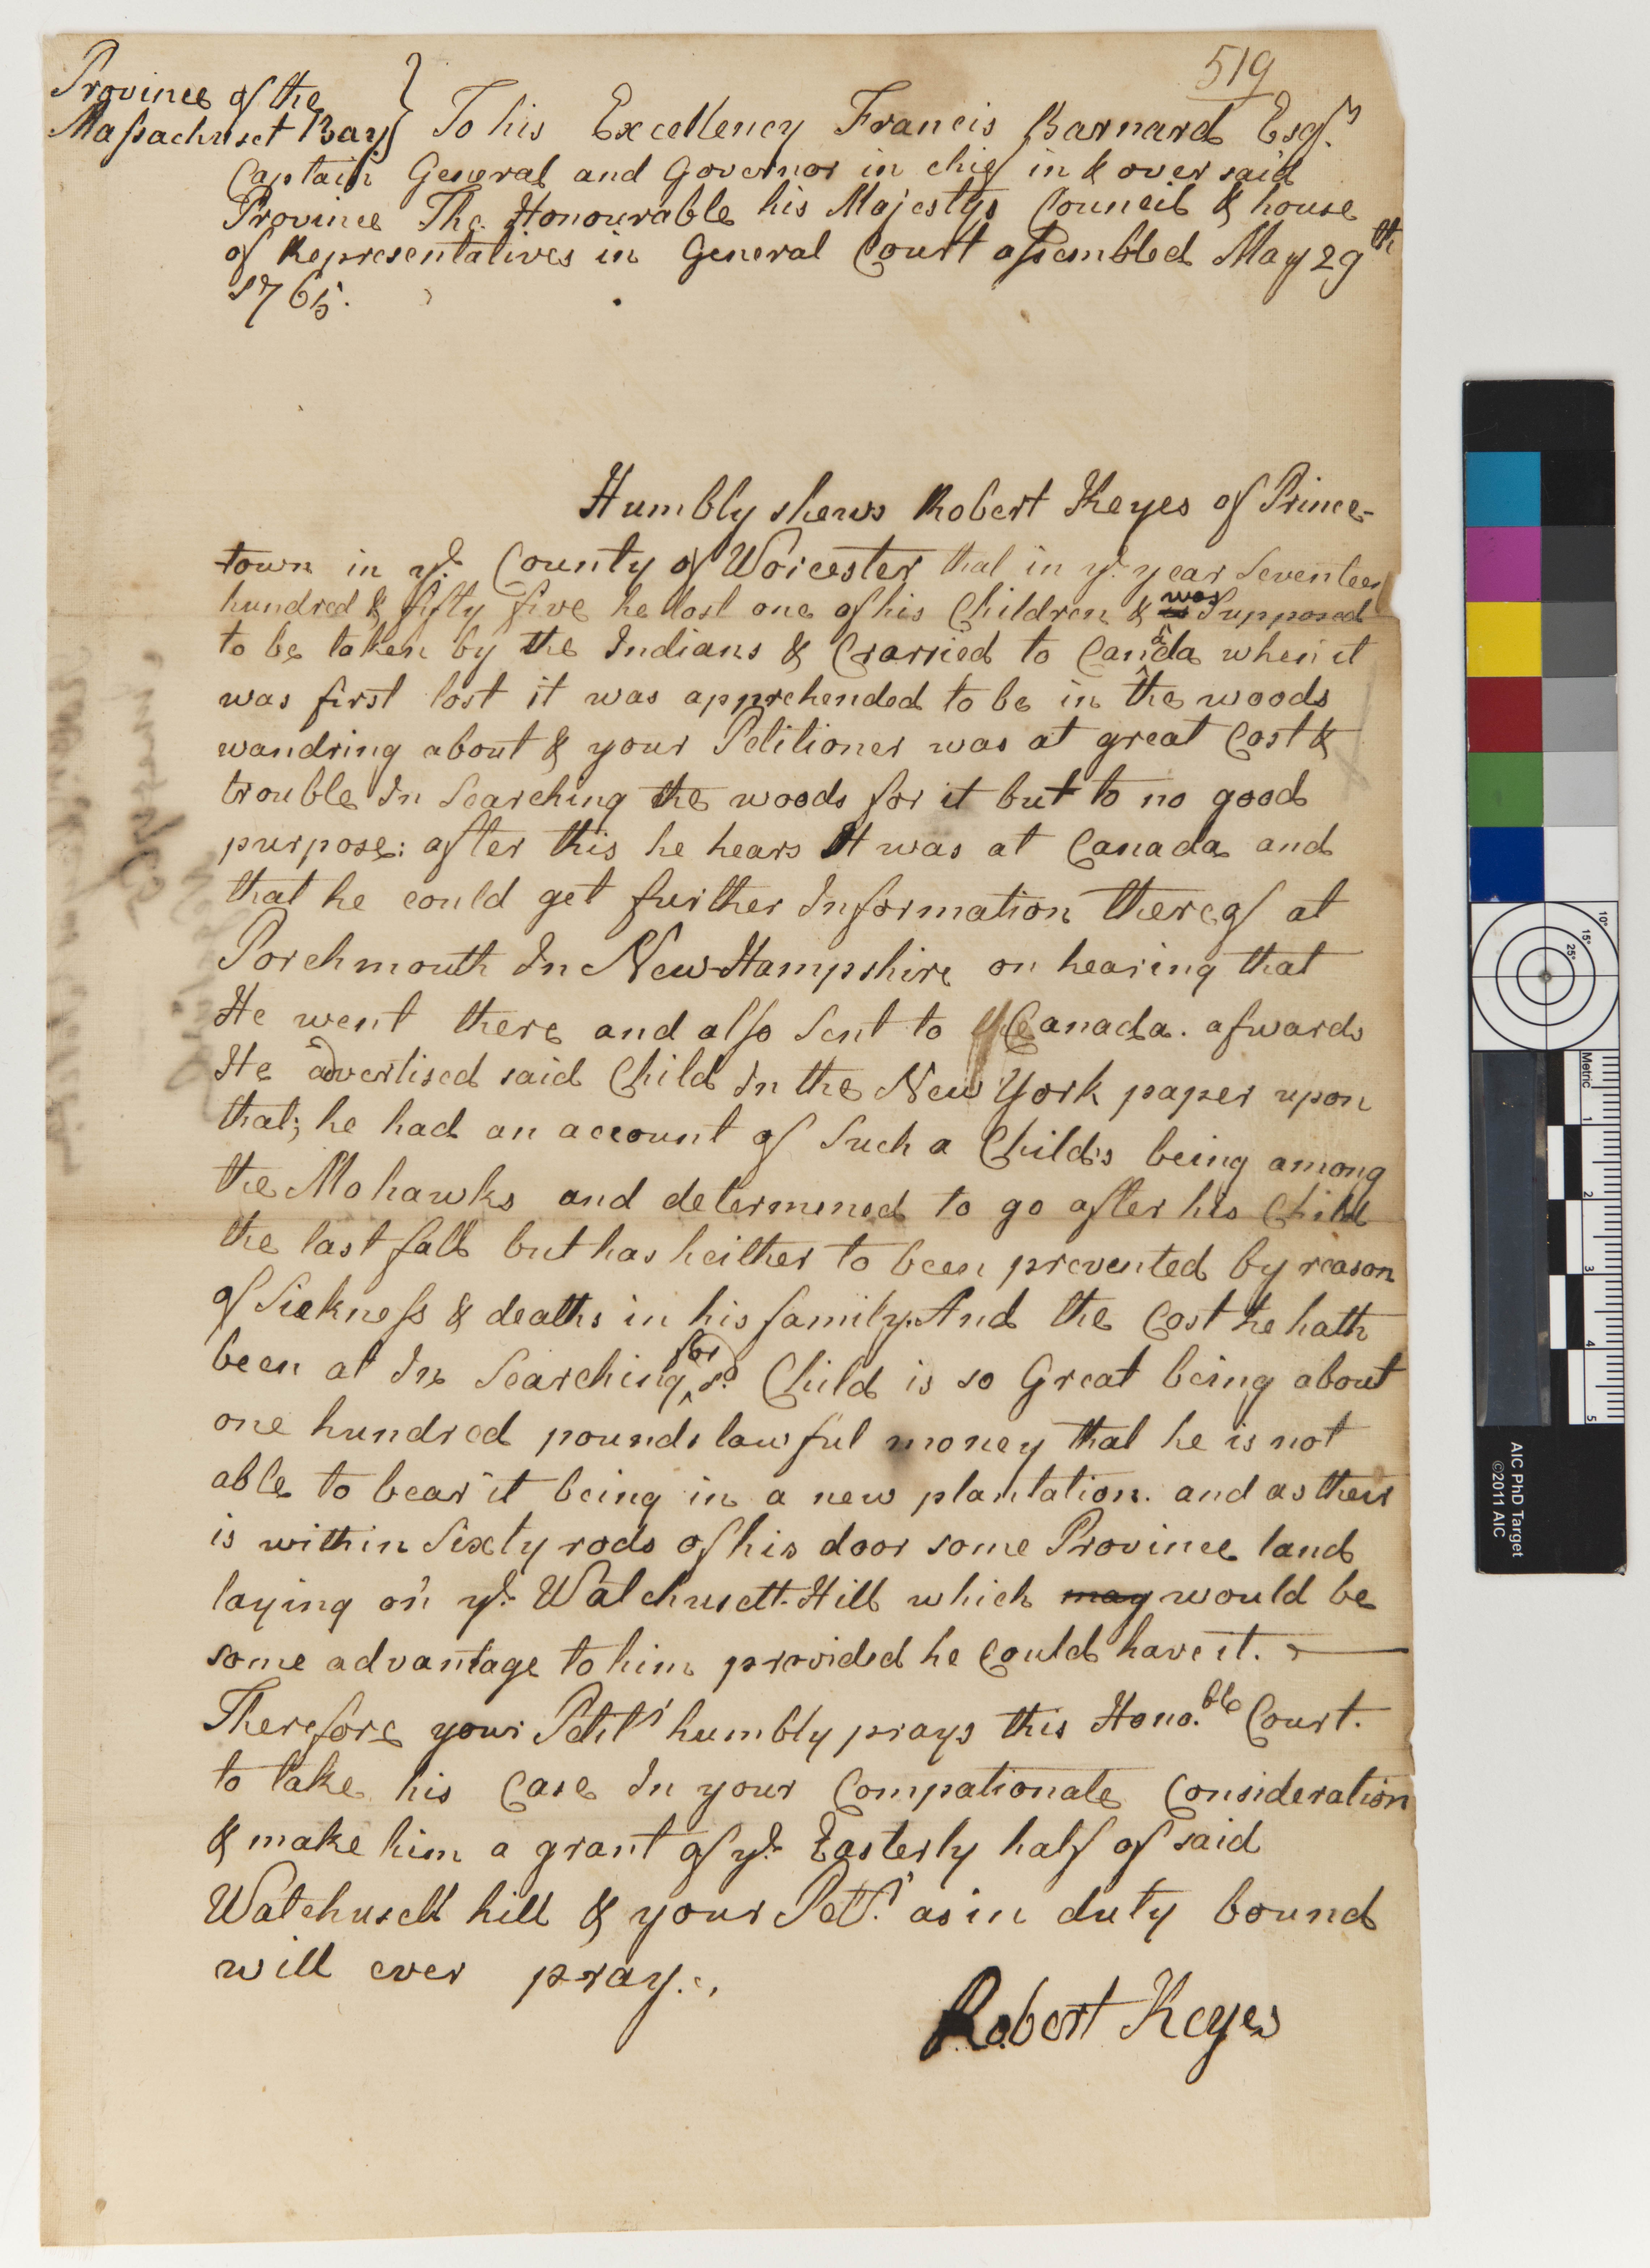 519
Province of the
Massachuset Bay } To his Excellency Francis Barnard Esqr.
Captain General and Governor in chief in & over said
Province The Honourable his Majestys Council & house
of Representatives in General Court assembled May 29th
1765.
Humbly shews Robert Keyes of Prince-
town in ye County of Worcester that in ye year Seventeen
hundred & fifty five he lost one of his Children & was Supposed
to be taken by the Indians & Crarried to Canada when it
was first lost it was apprehended to be in the woods
wandring about & your Petitioner was at great Cost &
trouble In Searching the woods for it but to no good
purpose: after this he hears It was at Canada and
that he could get further Information thereof at
Porchmouth In New-Hampshire on hearing that
He went there and also Sent to Canada. afwards
He advertised said Child In the New York paper upon
that; he had an account of Such a Child's being among
the Mohawks and determened to go after his Child
the last fall but has heither to been prevented by reason
of Sickness & deaths in his family. And the Cost he hath
been at In Searching for sd. Child is so Great being about
one hundred pounds lawful money that he is not
able to bear it being in a new plantation. and as their
is within Sixty rods of his door some Province land
laying on ye Watchusett-Hill which may would be
some advantage to him provided he Could have it.
Therefore your Petitr humbly prays this Hono.ble Court.
to take his Case In your Compationate Consideration
& make him a grant of ye Easterly half of said
Watchusett hill & your Pettr. as in duty bound
will ever pray.
Robert Keyes
10°
15°
25°
Metric
1
2
3
4
5
AIC PhD Target
©2011 AIC